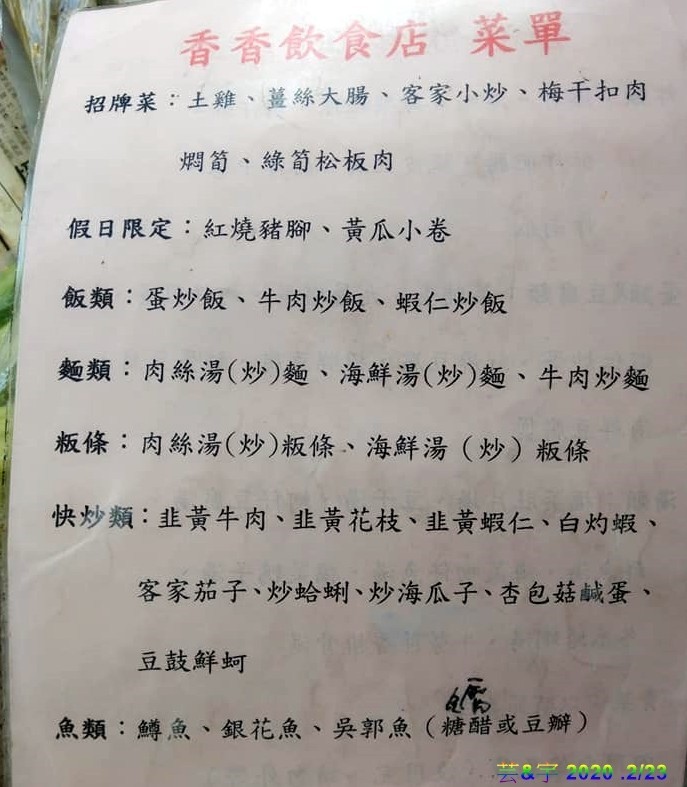 香香飲食店 菜單
招牌菜：土雞、薑絲大腸、客家小炒、梅干扣肉
燜筍、綠筍松板肉
假日限定：紅燒豬腳、黃瓜小卷
飯類：蛋炒飯、牛肉炒飯、蝦仁炒飯
麵類：肉絲湯(炒)麵、海鮮湯(炒)麵、牛肉炒麵
粄條：肉絲湯(炒)粄條、海鮮湯（炒）粄條
快炒類：韭黃牛肉、韭黃花枝、韭黃蝦仁、白灼蝦、
客家茄子、炒蛤蜊、炒海瓜子、杏包菇鹹蛋、
豆鼓鮮蚵
魚類：鱒魚、銀花魚、吳郭魚（糖醋或豆瓣）
芸&宇 2020 .2/23